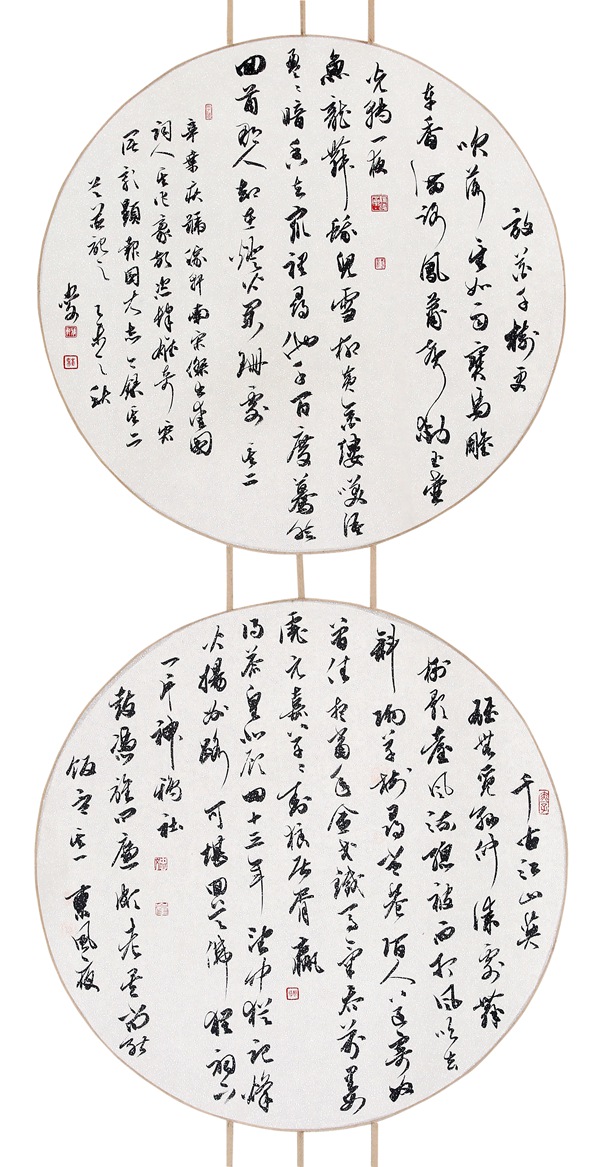 千古江山英
雄無覓孫仲謀處舞
榭歌臺風流總被雨打風吹去
斜陽草樹尋常巷陌人道寄奴
曾住想當年金戈鐵馬氣吞萬里如
虎元嘉草草封狼居胥贏
得倉皇北顧四十三年望中猶記烽
火揚州路可堪回首佛狸祠下
一片神鴉社
鼓憑誰問廉頗老矣尚能
飯否其一東風夜
放花千樹更
吹落星如雨寶馬雕
車香滿路鳳簫聲動玉壺
光轉一夜
魚龍舞蛾兒雪柳黃金縷笑語
盈盈暗香去衆裡尋他千百度驀然
回首那人卻在燈火闌珊處其二
辛棄疾號稼軒南宋傑出愛國
詞人其詞豪放恣肆雄奇
顯報國大志今錄其二
記之乙未之秋